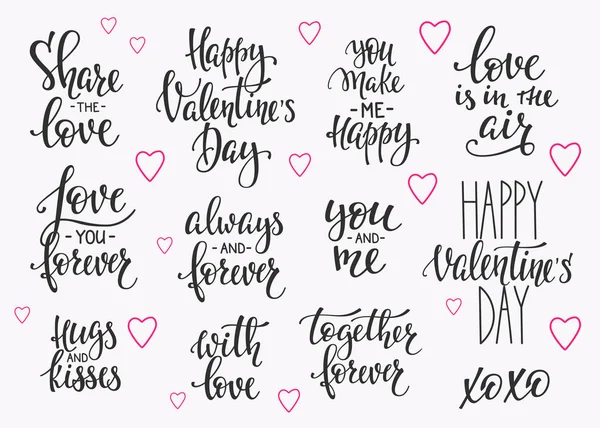 Share
-THE-
love
Happy
Valentine's
Day
you
make
-ME-
Happy
love
is in the
air
Love
-YOU-
forever
always
-AND-
forever
you
-AND-
me
HAPPY
Valentine's
DAY
Hugs
AND
kisses
with
love
together
forever
xoxo